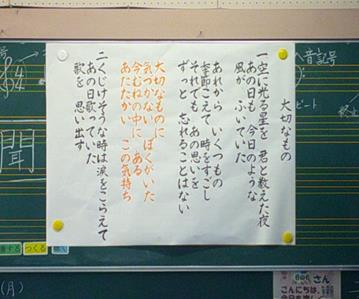 大切なもの
一 空に光る星を 君と数えた夜
あの日も 今日のような
風が ふいていた
あれから いくつもの
季節こえて 時をすごし
それでも あの思いを
ずっと 忘れることはない
大切なものに
気づかない ぼくがいた
今 むねの中に ある
あたたかい この気持ち
二 くじけそうな時は 涙をこらえて
あの日 歌っていた
歌を 思い出す
聞
つくる
(月)
さん
こんにちは